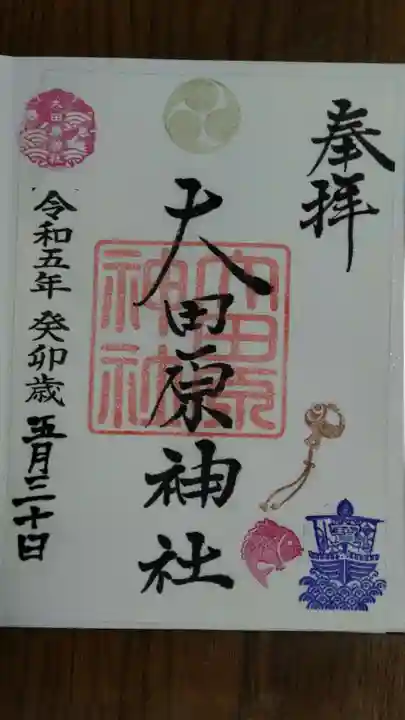 奉拝
大田原神社
大田原
神社
大田原神社
令和五年 癸卯歳 五月三十日
寶